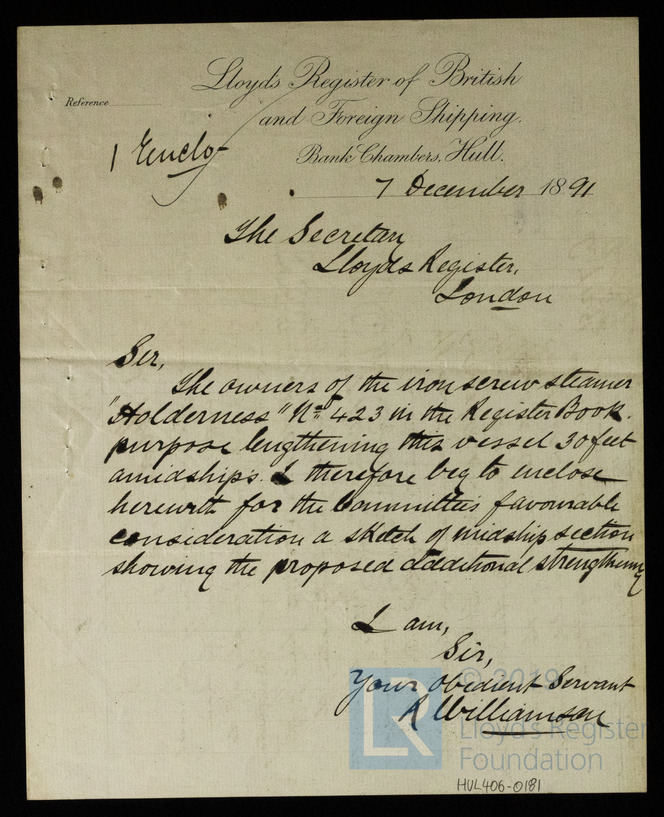 Lloyd's Register of British
Reference
and Foreign Shipping.
1 Enclo
Bank Chambers, Hull.
7 December 1891
The Secretary
Lloyds Register,
London
Sir,
The owners of the iron screw steamer
"Holderness" No 423 in the Register Book.
purpose lengthening this vessel 30 feet
amidships. I therefore beg to enclose
herewith for the Committee's favourable
consideration a sketch of midship section
showing the proposed additional strengthening
I am,
Sir,
Your obedient Servant
A Williamson
© 2019
LR
Lloyd's Register
Foundation
HUL406-0181